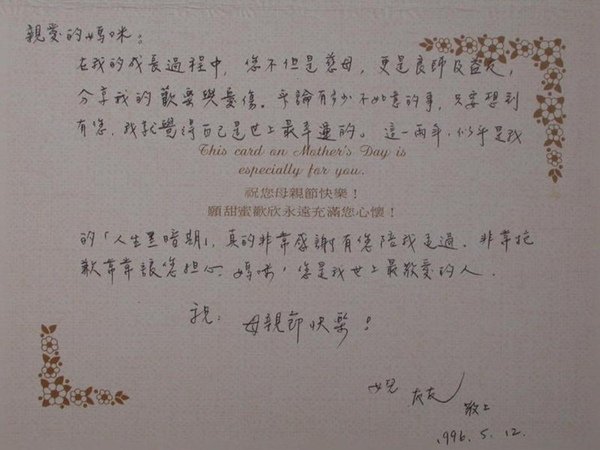 親愛的媽咪：
在我的成長過程中，您不但是慈母，更是良師及益友，
分享我的歡樂與憂傷。無論有多少不如意的事，只要想到
有您，我就覺得自己是世上最幸運的。這一兩年，似乎是我
This card on Mother's Day is
especially for you.
祝您母親節快樂！
願甜蜜歡欣永遠充滿您心懷！
的「人生黑暗期」，真的非常感謝有您陪我走過。非常抱
歉常常讓您担心。媽咪，您是我世上最敬愛的人。
祝：母親節快樂！
女兒 友友 敬上
1996. 5. 12.